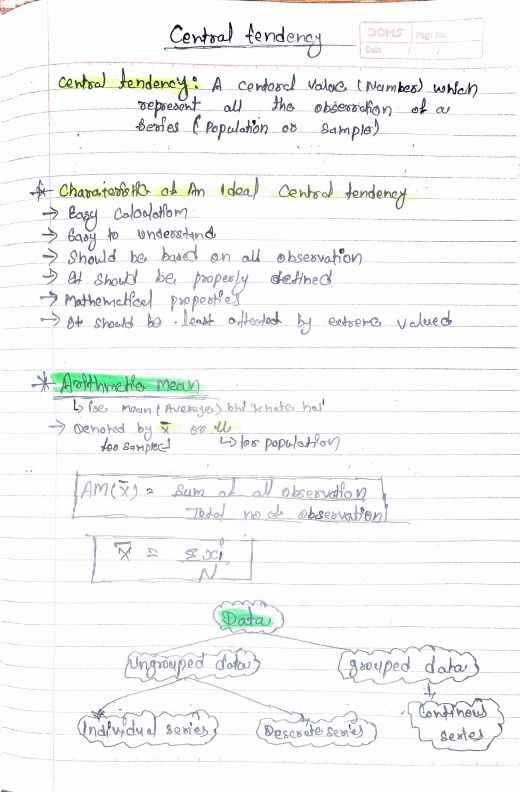 Central tendency
DOMS
Page No.
Date / /
Central tendency: A centeral value (Number) which
represent all the observation of a
series (Population or Sample)
* Charateristic of An Ideal Central tendency
→ Easy Calculation
→ Easy to understand
→ Should be based on all observation
→ It should be properly defined
→ Mathematical properties
→ It should be least affected by extreme valued
* Arithmetic mean
↳ ise mean (Average) bhi kehte hai
→ Denoted by x̄ or μ
for sample
↳ for population
AM(x̄) = Sum of all observation
Total no of observation
x̄ = Σxi
N
Data
Ungrouped data
grouped data
Individual series
Discrete series
Continous
series